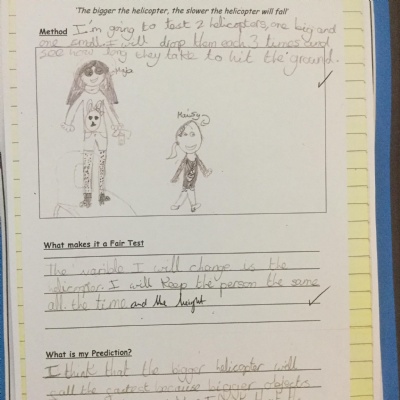 'The bigger the helicopter, the slower the helicopter will fall'
Method I'm going to test 2 helicopters, one big and
one small. I will drop them each 3 times and
see how long they take to hit the ground.
Maja
What makes it a Fair Test
The varible I will change is the
helicopter. I will keep the person the same
all the time and the height
What is my Prediction?
I think that the bigger helicopter will
fall the because bigger objects